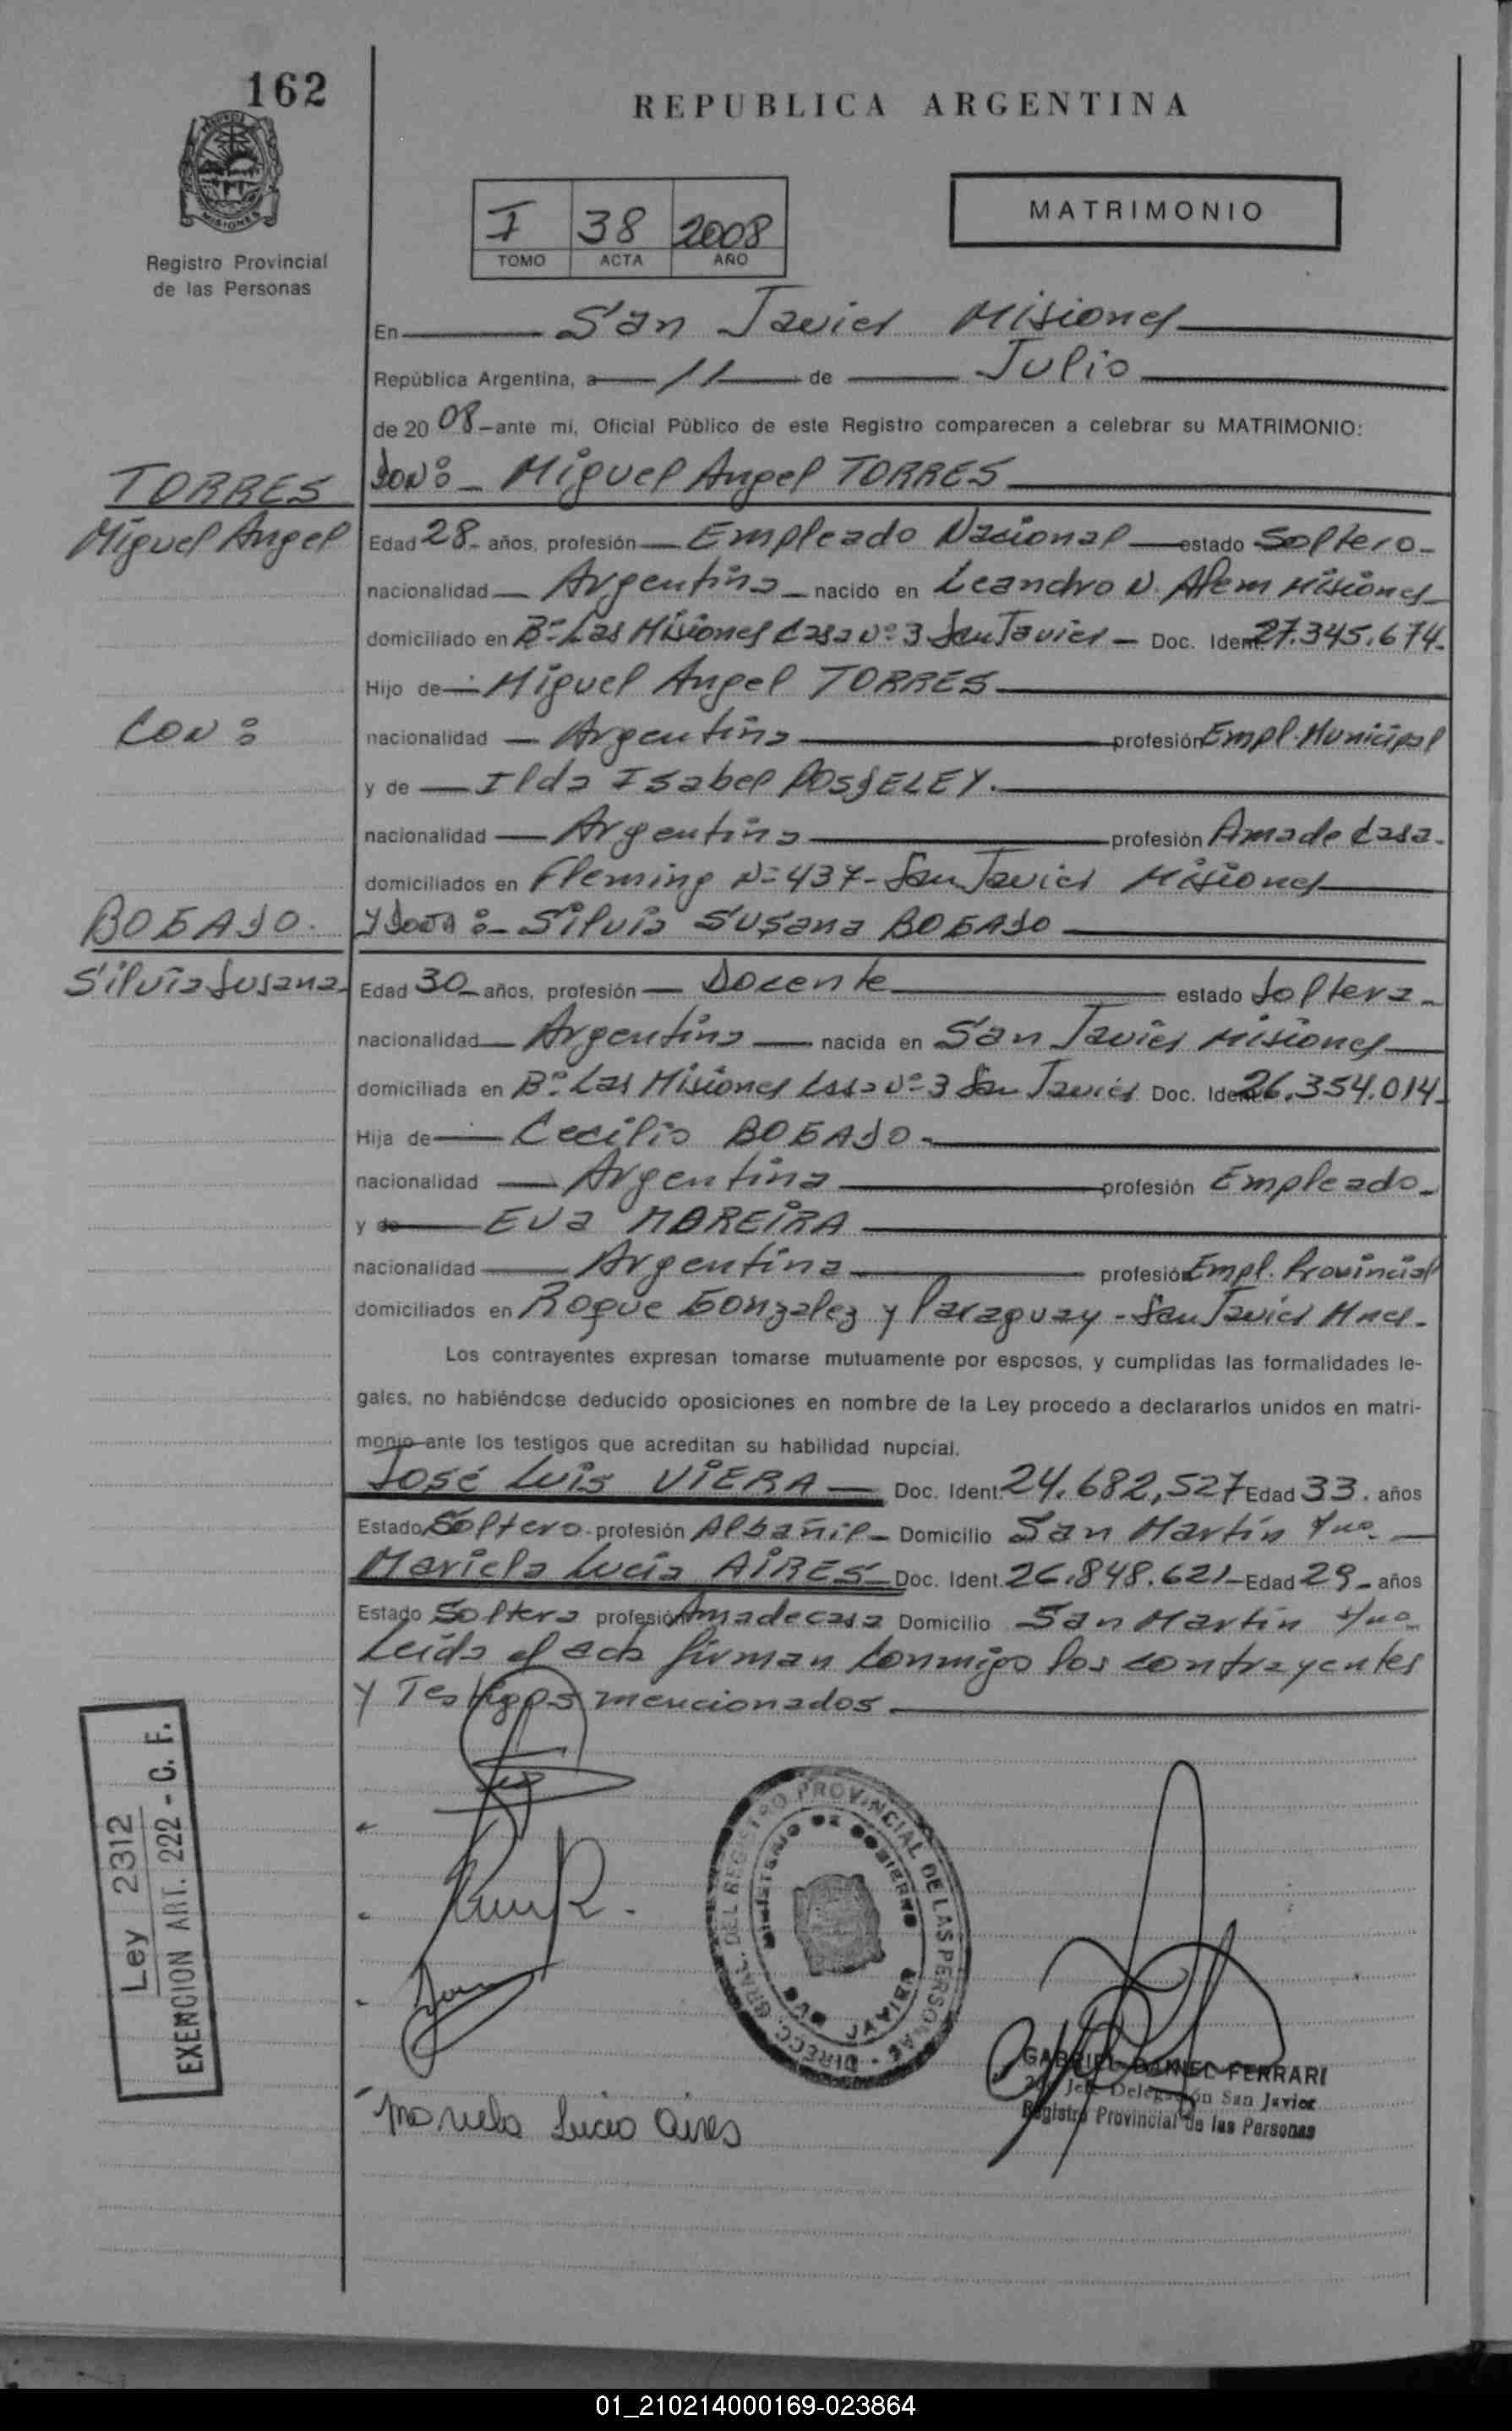 162
REPUBLICA ARGENTINA
MISIONES
Registro Provincial
de las Personas
I 38 2008
TOMO ACTA AÑO
MATRIMONIO
En San Javier Misiones
República Argentina, a 11 de Julio
de 20 08 ante mí, Oficial Público de este Registro comparecen a celebrar su MATRIMONIO:
DON: Miguel Angel TORRES
TORRES
Miguel Angel
Edad 28 años, profesión Empleado Nacional estado Soltero
nacionalidad Argentina nacido en Leandro N. Alem Misiones
domiciliado en Bº Las Misiones Casa Nº 3 San Javier Doc. Ident. 27.345.674
Hijo de Miguel Angel TORRES
CON:
nacionalidad Argentina profesión Empl. Municipal
y de Ilda Isabel
nacionalidad Argentina profesión Ama de Casa
domiciliados en Fleming Nº 437 - San Javier Misiones
BOGADO
Silvia Susana
y DOÑA: Silvia Susana BOGADO
Edad 30 años, profesión Docente estado Soltera
nacionalidad Argentina nacida en San Javier Misiones
domiciliada en Bº Las Misiones Casa Nº 3 San Javier Doc. Ident. 26.354.014
Hija de Cecilio BOGADO
nacionalidad Argentina profesión Empleado
y de Eva MOREIRA
nacionalidad Argentina profesión Empl. Provincial
domiciliados en Roque Gonzalez y Paraguay - San Javier Mnes.
Los contrayentes expresan tomarse mutuamente por esposos, y cumplidas las formalidades le-
gales, no habiéndose deducido oposiciones en nombre de la Ley procedo a declararlos unidos en matri-
monio ante los testigos que acreditan su habilidad nupcial.
José Luis VIERA Doc. Ident. 24.682.527 Edad 33 años
Estado Soltero profesión Albañil Domicilio San Martín
Mariela Lucía AIRES Doc. Ident. 26.848.621 Edad 29 años
Estado Soltera profesión Ama de casa Domicilio San Martín
Leída el acta firman conmigo los contrayentes
y Testigos mencionados
Ley 2312
EXENCION ART. 222 - C. F.
DIRECC. GRAL. DEL REGISTRO PROVINCIAL DE LAS PERSONAS
MINISTERIO DE GOBIERNO
SAN JAVIER
Mariela Lucia Aires
GABRIEL DANIEL FERRARI
Jefe Delegación San Javier
Registro Provincial de las Personas
01_210214000169-023864